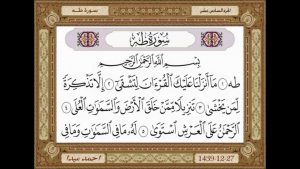 الجزء السادس عشر
سورة طه
سُورَةُ طه
بِسْمِ اللَّهِ الرَّحْمَٰنِ الرَّحِيمِ
طه ١ مَا أَنزَلْنَا عَلَيْكَ الْقُرْءَانَ لِتَشْقَىٰ ٢ إِلَّا تَذْكِرَةً
لِّمَن يَخْشَىٰ ٣ تَنزِيلًا مِّمَّنْ خَلَقَ الْأَرْضَ وَالسَّمَٰوَٰتِ الْعُلَى ٤
الرَّحْمَٰنُ عَلَى الْعَرْشِ اسْتَوَىٰ ٥ لَهُ مَا فِي السَّمَٰوَٰتِ وَمَا فِي
1439-12-27